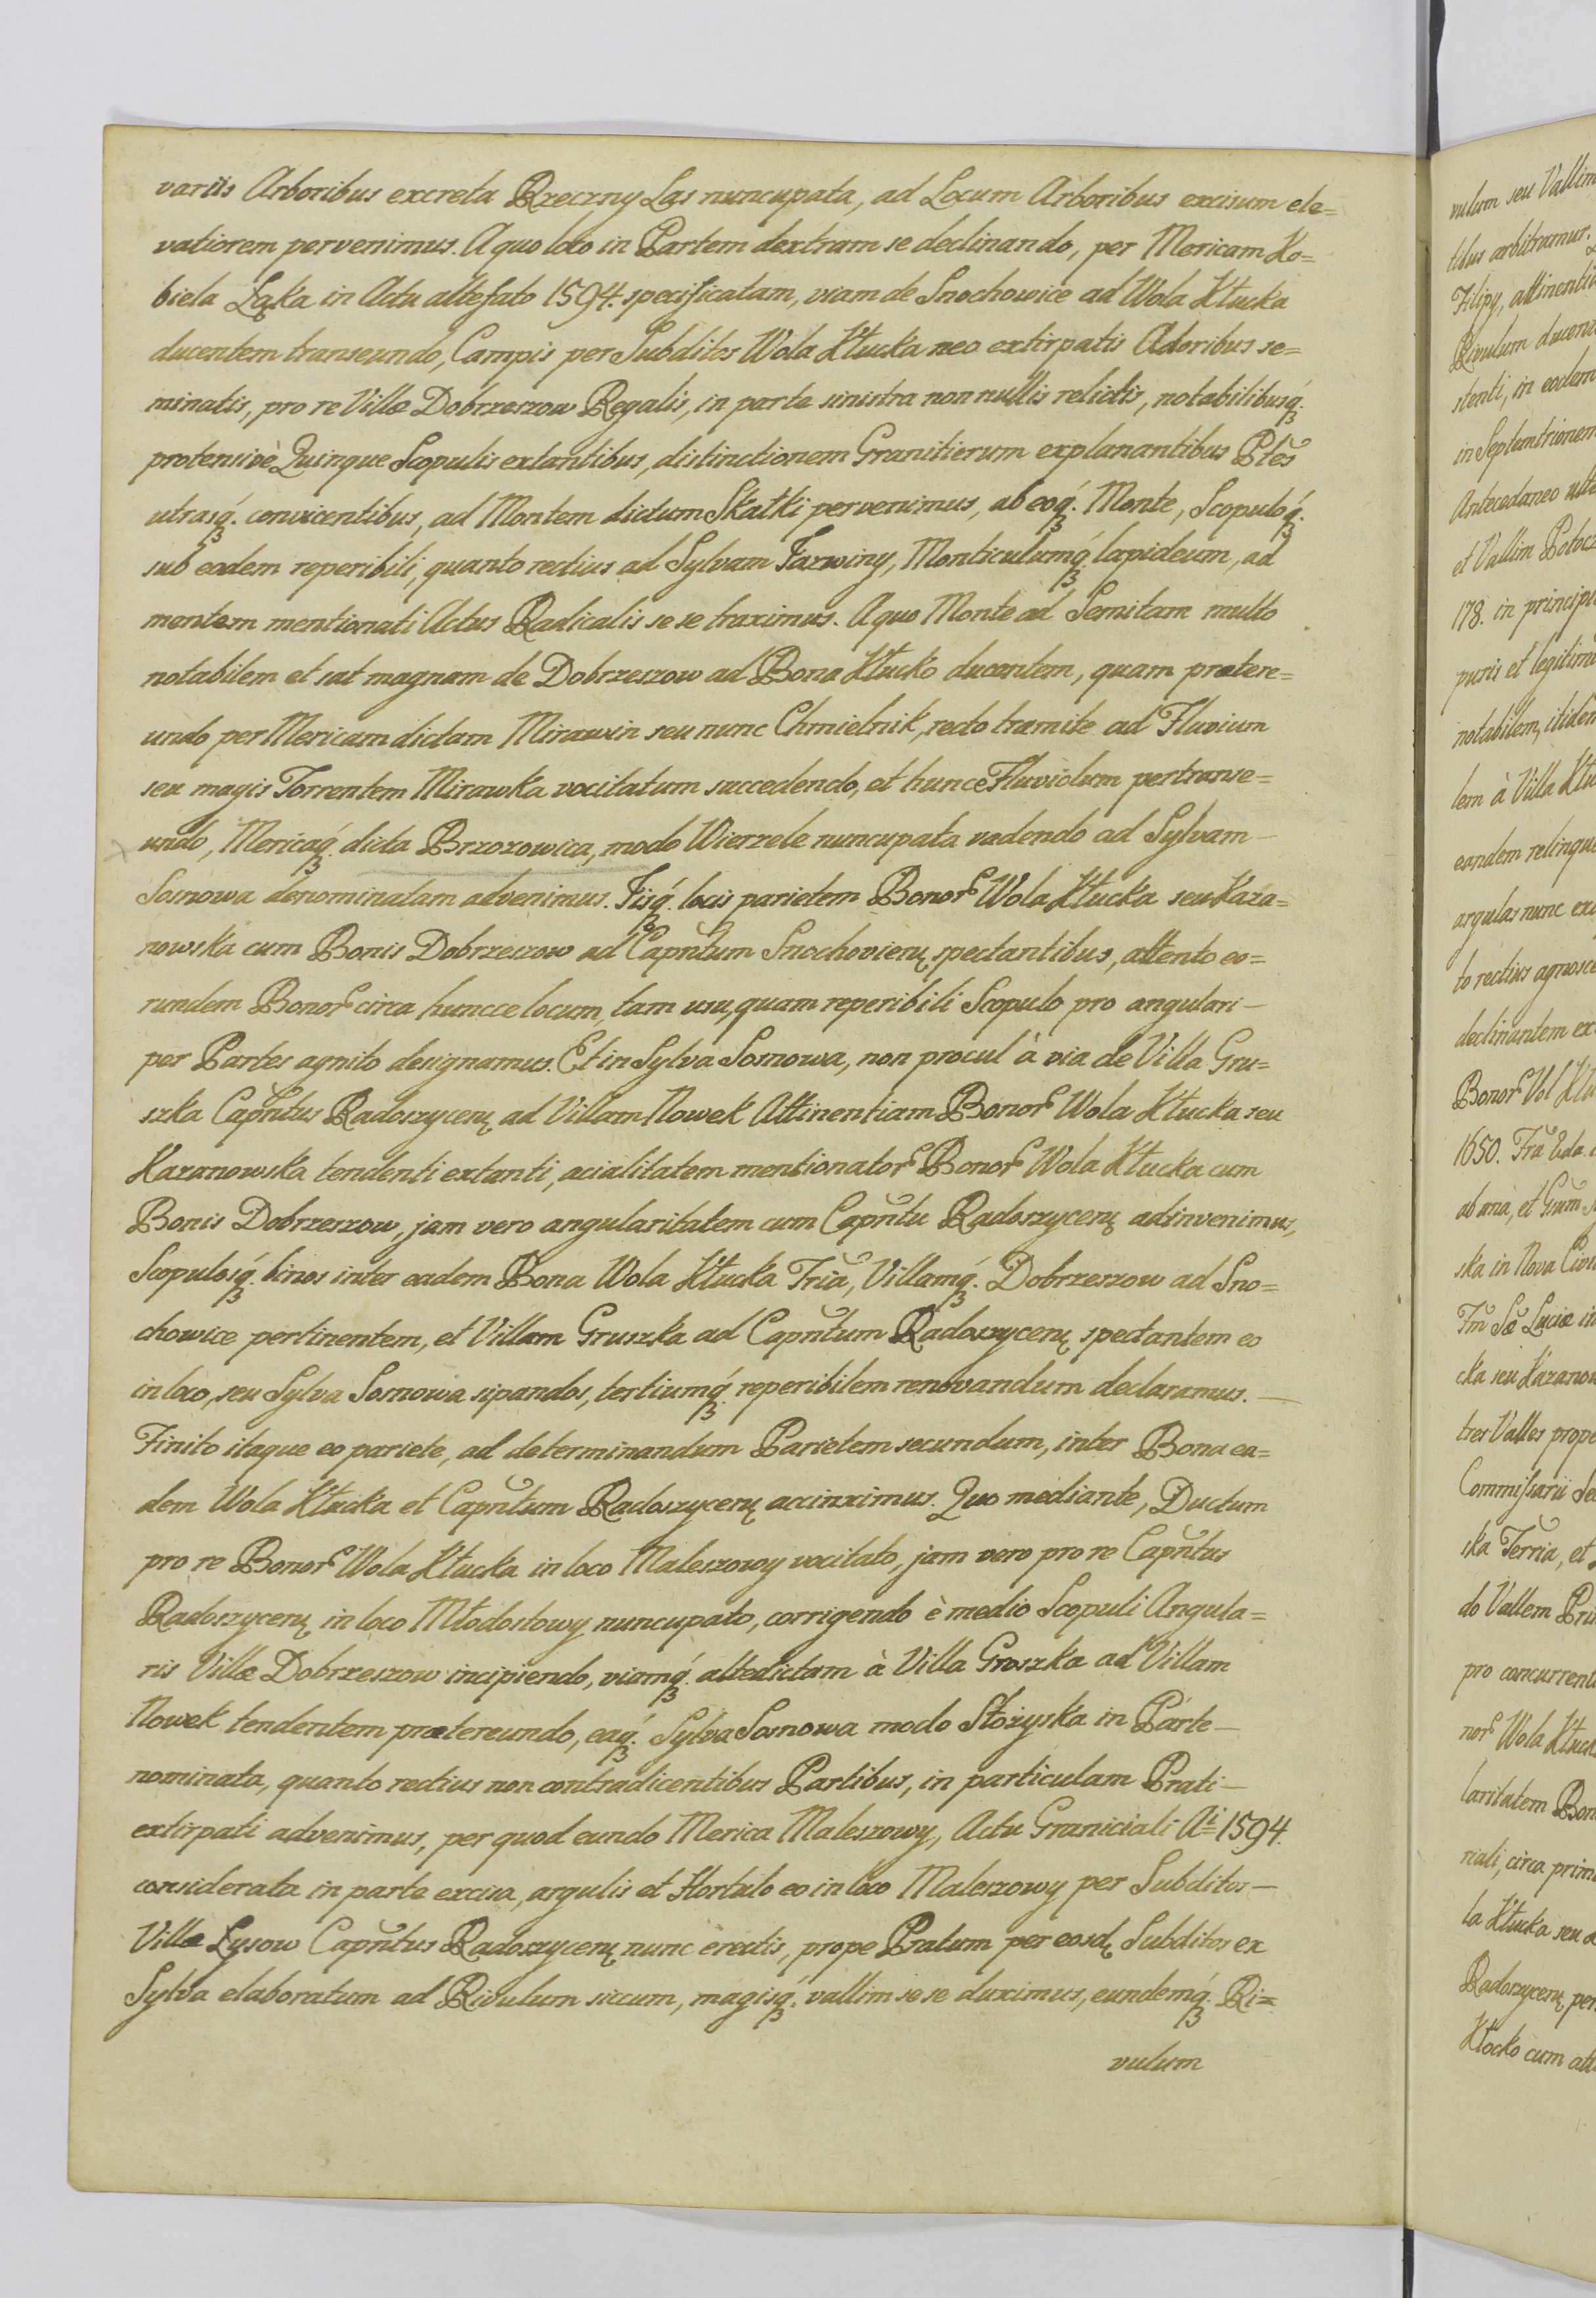 variis Arboribus excreta Rzeczny Las nuncupata, ad Locum Arboribus excisum ele=
vatiorem pervenimus. A quo loco in Partem dextram se declinando, per Mericam Ko=
biela Łąka in Actu altefato 1594. specificatam, viam de Snochowice ad Wola Kłucka
ducentem transeundo, Campis per Subditos Wola Kłucka neo extirpatis Adoribus se=
minatis, pro re Villæ Dobrzeszow Regalis, in parte sinistra non nullis relictis, notabilibusq́ꝫ.
protensivè Quinque Scopulis extantibus, distinctionem Granitierum explanantibus Ptes̃
utrasq́ꝫ. convicentibus, ad Montem dictum Skałki pervenimus, ab eoq́ꝫ. Monte, Scopuloq́ꝫ.
sub eodem reperibili, quanto rectius ad Sylvam Jazwiny, Monticulumq́ꝫ. lapideum, ad
mentem mentionati Actus Radicalis se se traximus. A quo Monte ad Semitam multo
notabilem et sat magnam de Dobrzeszow ad Bona Kłucko ducentem, quam prætere=
undo per Mericam dictam Mirawin seu nunc Chmielnik, recto tramite ad Fluvium
seu magis Torrentem Mirawka vocitatum succedendo, et huncce Fluviolum pertranse=
undo, Mericaq́ꝫ. dicta Brzozowica, modo Wierzele nuncupata vadendo ad Sylvam —
Sosnowa denominatam advenimus. Jisq́ꝫ. locis parietem Bonor̃ Wola Kłucka seu Kaza=
nowska cum Bonis Dobrzeszow ad Capñtum Snochovien̨ spectantibus, attento eo=
rundem Bonor̃ circa huncce locum, tam usu, quam reperibili Scopulo pro angulari —
per Partes agnito designamus. Et in Sylva Sosnowa, non procul à via de Villa Gru=
szka Capñtus Radoszycen̨ ad Villam Nowek Attinentiam Bonor̃ Wola Kłucka seu
Kazanowska tendenti extanti, acialitatem mentionator̃ Bonor̃ Wola Kłucka cum
Bonis Dobrzeszow, jam vero angularitatem cum Capñtu Radoszycen̨ adinvenimus,
Scopulosq́ꝫ. binos inter eadem Bona Wola Kłucka Tria̴, Villamq́ꝫ. Dobrzeszow ad Sno=
chowice pertinentem, et Villam Gruszka ad Capñtum Radoszycen̨ spectantem eo
in loco, seu Sylva Sosnowa sipandos, tertiumq́ꝫ. reperibilem renovandum declaramus. —
Finito itaque eo pariete, ad determinandum Parietem secundum, inter Bona ea=
dem Wola Kłucka et Capñtum Radoszycen̨ accinximus. Quo mediante, Ductum
pro re Bonor̃ Wola Kłucka in loco Maleszowy vocitato, jam vero pro re Capñtus
Radoszycen̨ in loco Młodostowy nuncupato, corrigendo è medio Scopuli Angula=
ris Villæ Dobrzeszow incipiendo, viamq́ꝫ. altedictam à Villa Groszka ad Villam
Nowek tendentem prætereundo, eaq́ꝫ. Sylva Sosnowa modo Stożyska in Parte —
nominata, quanto rectius non contradicentibus Partibus, in particulam Prati —
extirpati advenimus, per quod eundo Merica Maleszowy, Actu Graniciali Ai 1594.
considerata in parte excisa, argulis et Hortulo eo in loco Maleszowy per Subditos —
Villæ Lysow Capñtus Radoszycen̨ nunc erectis, prope Pratum per eosd̨ Subditos ex
Sylva elaboratum ad Rivulum siccum, magisq́ꝫ. vallim se se duximus, eundemq́ꝫ. Ri=
vulum
vulum seu Vallim
titus arbitramur.
Filipy, attinenti
Rivulum ducen
stenti, in eodem
in Septemtrionem
Antecedaneo
et Vallim
178. in princip
puris et legitim
notabilem, itidem
lem à Villa
eandem relinque
argulas nunc
to rectius agnosce
declinantem ex
Bonor̃ Wol
1650.
ska in Nova
cka seu Kazanow
tres Valles prope
Commissarii
do Vallem
pro concurrent
nor̃ Wola Kłuck
laritatem Bon
riali, circa prim
la Kłucka seu
Radoszycen̨ per
Kłocko cum